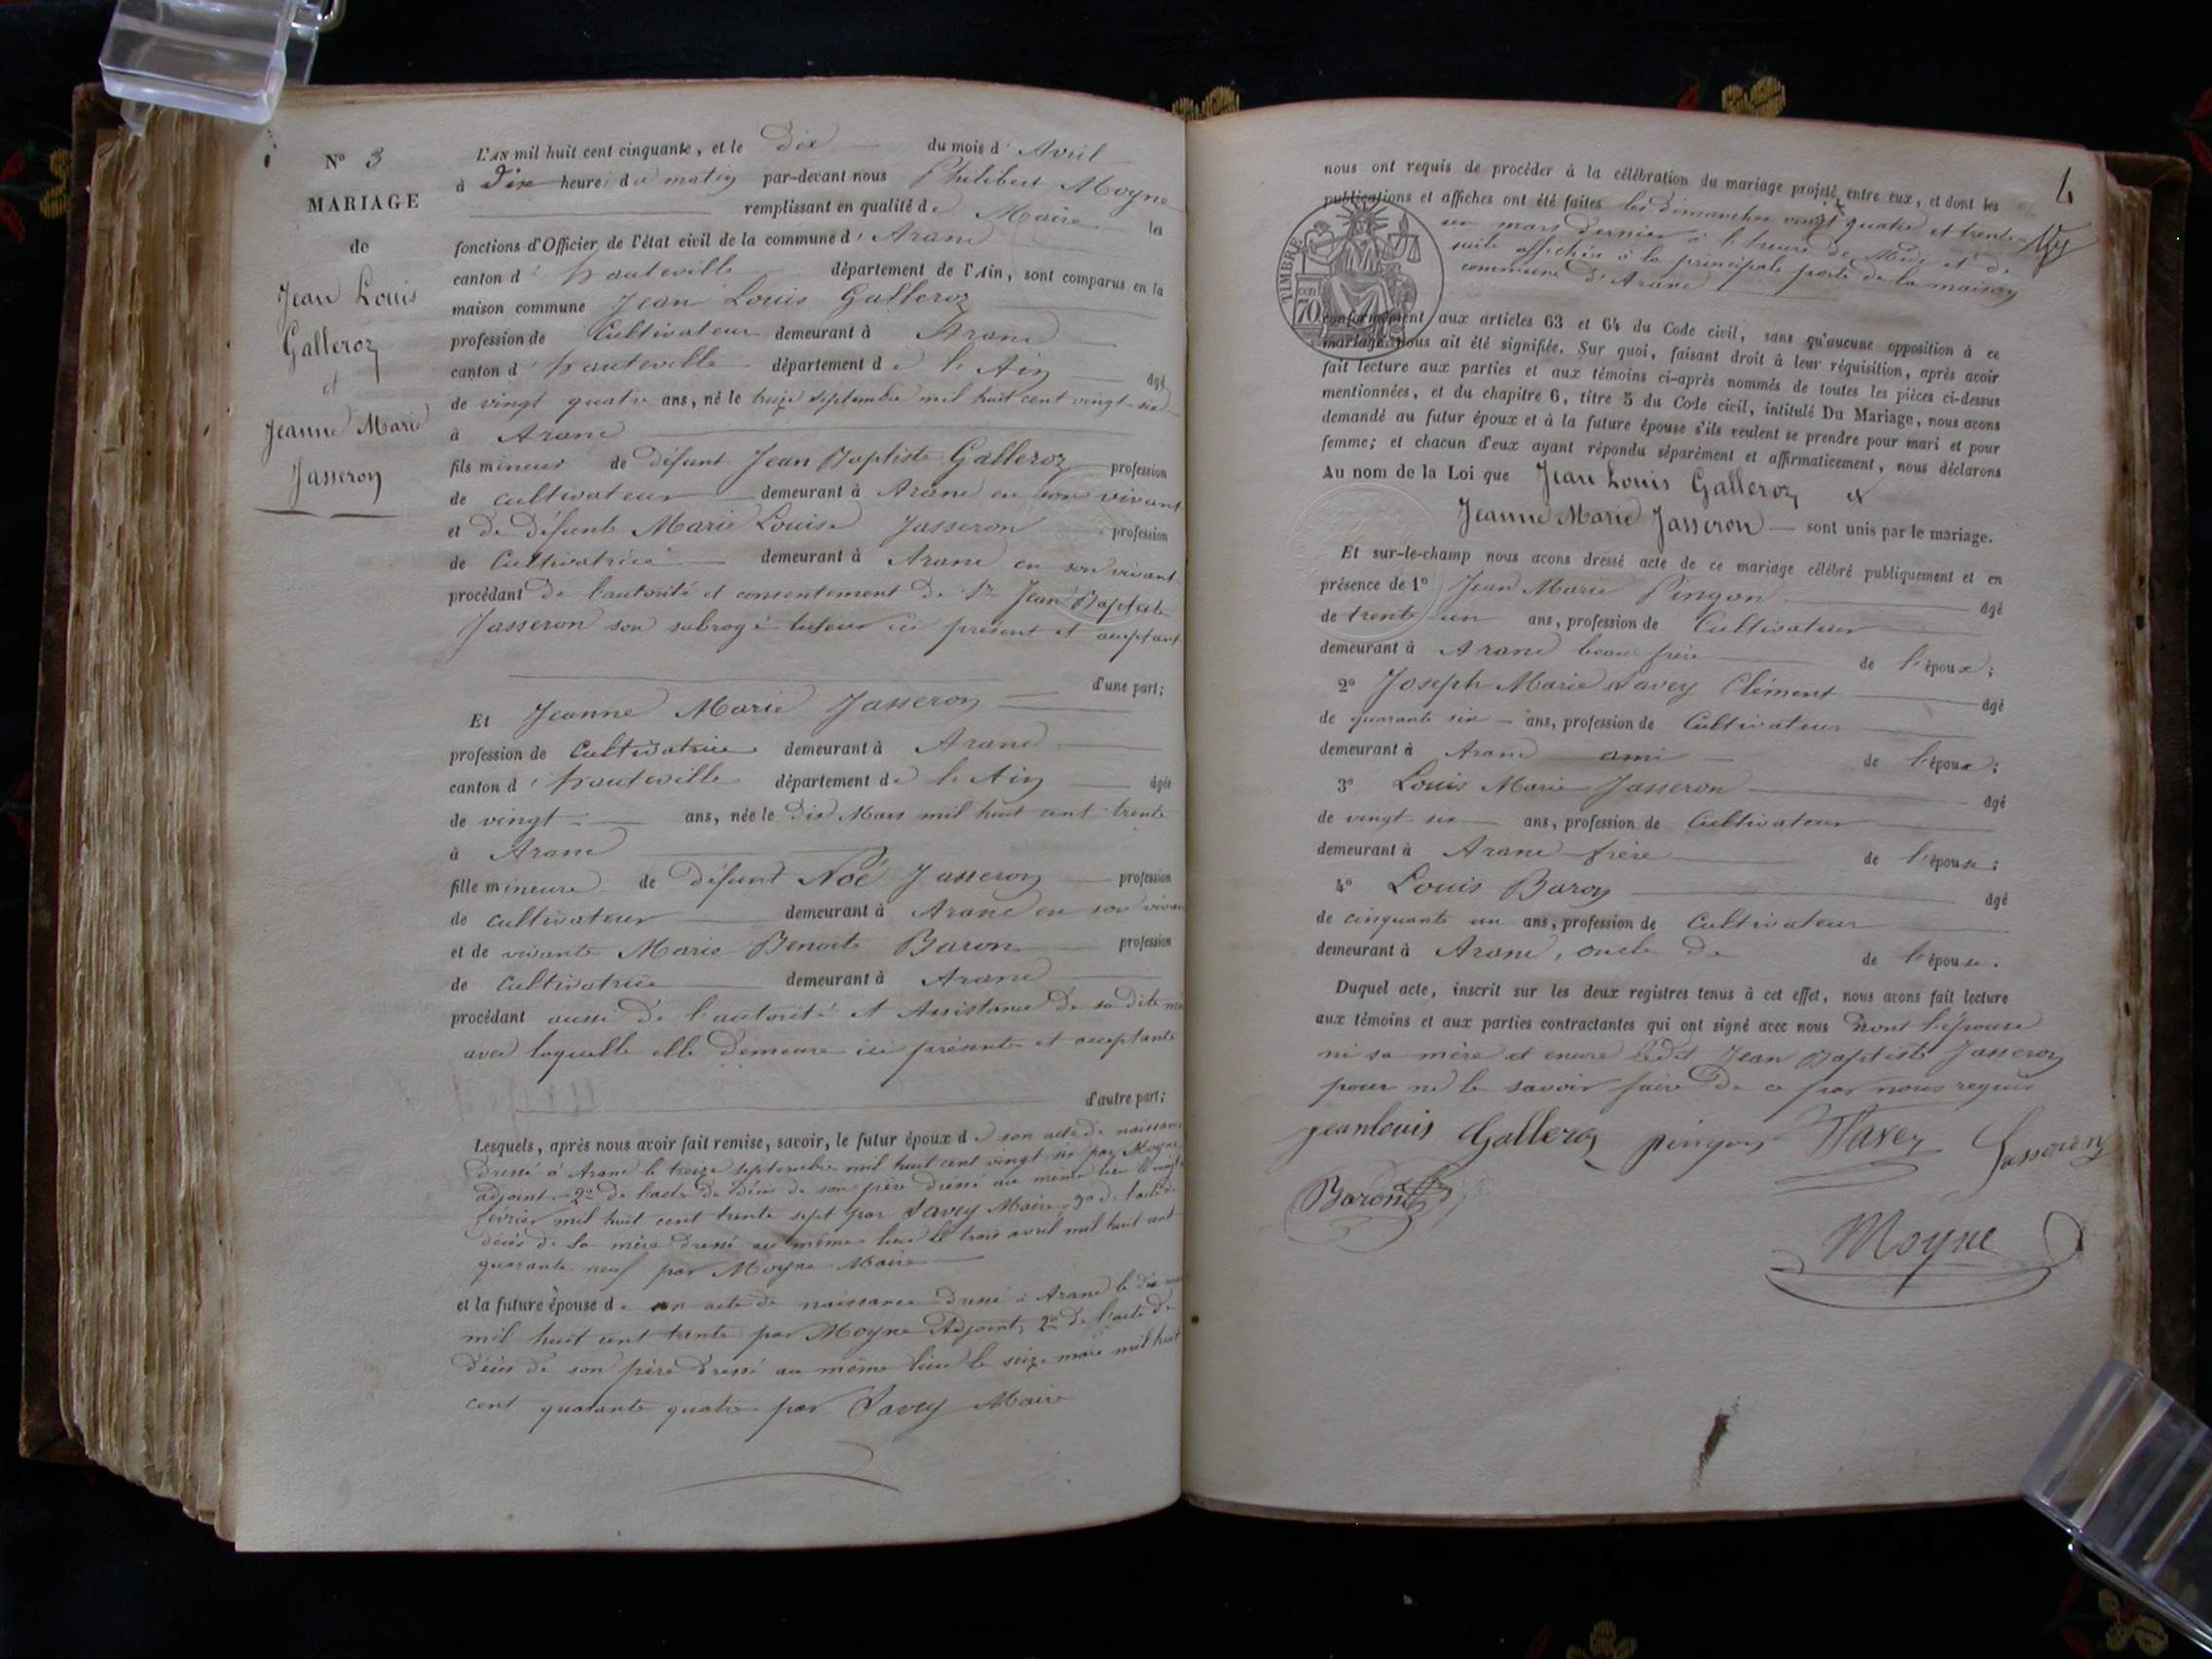 N° 3
MARIAGE
de
Jean Louis
Galleroz
et
Jeanne Marie
Jasseron
L'AN mil huit cent cinquante, et le Dix du mois d'Avril
à Dix heures du matin par-devant nous Philibert Moyne
remplissant en qualité de Maire les
fonctions d'Officier de l'état civil de la commune d'Aranc
canton d'hauteville département de l'Ain, sont comparus en la
maison commune Jean Louis Galleroz
profession de Cultivateur demeurant à Aranc
canton d'hauteville département de l'Ain âgé
de vingt quatre ans, né le treize septembre mil huit cent vingt-six
à Aranc
fils mineur de défunt Jean Baptiste Galleroz profession
de cultivateur demeurant à Aranc en son vivant
et de défunte Marie Louise Jasseron profession
de Cultivatrice demeurant à Aranc en son vivant
procédant de l'autorité et consentement de Sr Jean Baptiste
Jasseron son subrogé tuteur ici présent et acceptant
d'une part;
Et Jeanne Marie Jasseron
profession de Cultivatrice demeurant à Aranc
canton d'hauteville département de l'Ain âgée
de vingt ans, née le dix Mars mil huit cent trente
à Aranc
fille mineure de défunt Noé Jasseron profession
de cultivateur demeurant à Aranc en son vivan
et de vivante Marie Benoite Baron profession
de Cultivatrice demeurant à Aranc
procédant aussi de l'autorité et Assistance de sa dite
avec laquelle elle demeure ici présente et acceptante
d'autre part;
Lesquels, après nous avoir fait remise, savoir, le futur époux de son acte de naissance
dressé à Aranc le treize septembre mil huit cent vingt six par Moyne
adjoint, 2° de l'acte de décès de son père dressé au même lieu le vingt
février mil huit cent trente sept par Savey Maire, 3° de l'acte de
décès de sa mère dressé au même lieu le trois avril mil huit cent
quarante neuf par Moyne Maire
et la future épouse de son acte de naissance dressé à Aranc le dix
mil huit cent trente par Moyne Adjoint; 2° de l'acte de
décès de son père dressé au même lieu le seize mars mil huit
cent quarante quatre par Savey Maire
4
nous ont requis de procéder à la célébration du mariage projeté entre eux, et dont les
publications et affiches ont été faites les dimanches vingt quatre et trente
un mars dernier à l'heure de Midi et de
suite affichées à la principale porte de la maison
commune d'Aranc
TIMBRE
70 cen
conformément aux articles 63 et 64 du Code civil, sans qu'aucune opposition à ce
mariage nous ait été signifiée. Sur quoi, faisant droit à leur réquisition, après avoir
fait lecture aux parties et aux témoins ci-après nommés de toutes les pièces ci-dessus
mentionnées, et du chapitre 6, titre 5 du Code civil, intitulé Du Mariage, nous avons
demandé au futur époux et à la future épouse s'ils veulent se prendre pour mari et pour
femme; et chacun d'eux ayant répondu séparément et affirmativement, nous déclarons
Au nom de la Loi que Jean Louis Galleroz et
Jeanne Marie Jasseron sont unis par le mariage.
Et sur-le-champ nous avons dressé acte de ce mariage célébré publiquement et en
présence de 1° Jean Marie Pingon âgé
de trente-un ans, profession de Cultivateur
demeurant à Aranc beau frère de l'époux;
2° Joseph Marie Savey Clément âgé
de quarante six ans, profession de Cultivateur
demeurant à Aranc ami de l'époux;
3° Louis Marie Jasseron âgé
de vingt-six ans, profession de Cultivateur
demeurant à Aranc frère de l'épouse;
4° Louis Baron âgé
de cinquante un ans, profession de Cultivateur
demeurant à Aranc, oncle de de l'épouse.
Duquel acte, inscrit sur les deux registres tenus à cet effet, nous avons fait lecture
aux témoins et aux parties contractantes qui ont signé avec nous non l'épouse
ni sa mère et encore ledit Jean Baptiste Jasseron
pour ne le savoir faire de ce par nous requis
jean louis Galleroz pingon Savey Jasseron
Baron
Moyne